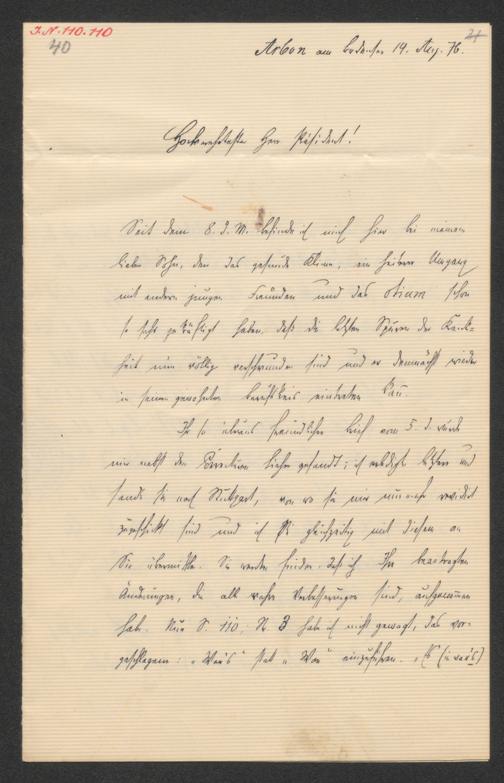 J.N. 110.110
40
21
Arbon am Bodensee 14. Aug. 76.
Hochverehrtester Herr Präsident!
Seit dem 8. d. M. befinde ich mich hier bei meinem
lieben Sohn, den das gesunde Klima, ein heiterer Umgang
mit andern jungen Freunden und das otium schon
so sehr gekräftigt haben, daß die letzten Spuren der Krank-
heit nun völlig verschwunden sind und er demnächst wieder
in seinen gewohnten Berufskreis eintreten kann.
Ihr so überaus freundlicher Brief vom 5. d. wurde
mir nebst den Correcturen hieher gesandt; ich erledigte letztere und
sandte sie nach Stuttgart, von wo sie mir nunmehr revidirt
zugeschickt sind und ich sie gleichzeitig mit diesem an
Sie übermittle. Sie werden finden, daß ich Ihre beantragten
Änderungen, die alle wahre Verbesserungen sind, aufgenommen
habe. Nur S. 110, N. 3 habe ich nicht gewagt, das vor-
geschlagene: „War's" statt „War" einzuführen.